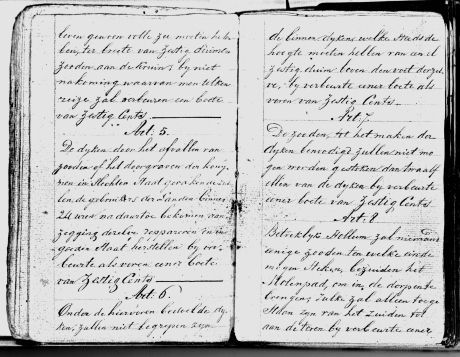 leven gewoon volle zee moeten heb
ben, ter boete van Zestig Cents
zooden aan de kruin; by niet
nakoming waarvan men telken
reize zal verbeuren een boete
van Zestig Cents
Art: 5.
De dyken door het afvallen van
zooden of het doorgraven der konij
nen in slechten Staat geraakende zul
len de gebruikers der Landen binnen
24 uren na daartoe bekomen aan
zegging dezelve repareeren en in
goeden Staat herstellen by ver
beurte als voren eener boete
van Zestig Cents
Art: 6.
Onder de hiervoren bedoelde dy
ken, zullen niet begrepen zyn
de binnen dyken welke Stads de
hoogte moeten hebben van een el
Zestig duim boven den voet derzel
ve, by verbeurte eener boete als
voren van Zestig Cents
Art: 7.
De zooden, tot het maken der
dyken benoodigd zullen niet mo
gen worden gestoken dan twaalf
ellen van de dyken by verbeurte
eener boete van Zestig Cents
Art: 8
Betreklyk zal niemand
eenige zooden ten welke einde
mogen steken, bezuiden het
Molenpad, om in de dorpen te
brengen zulke zal alleen toege
staan zyn van het zuiden tot
aan de toren by verbeurte eener